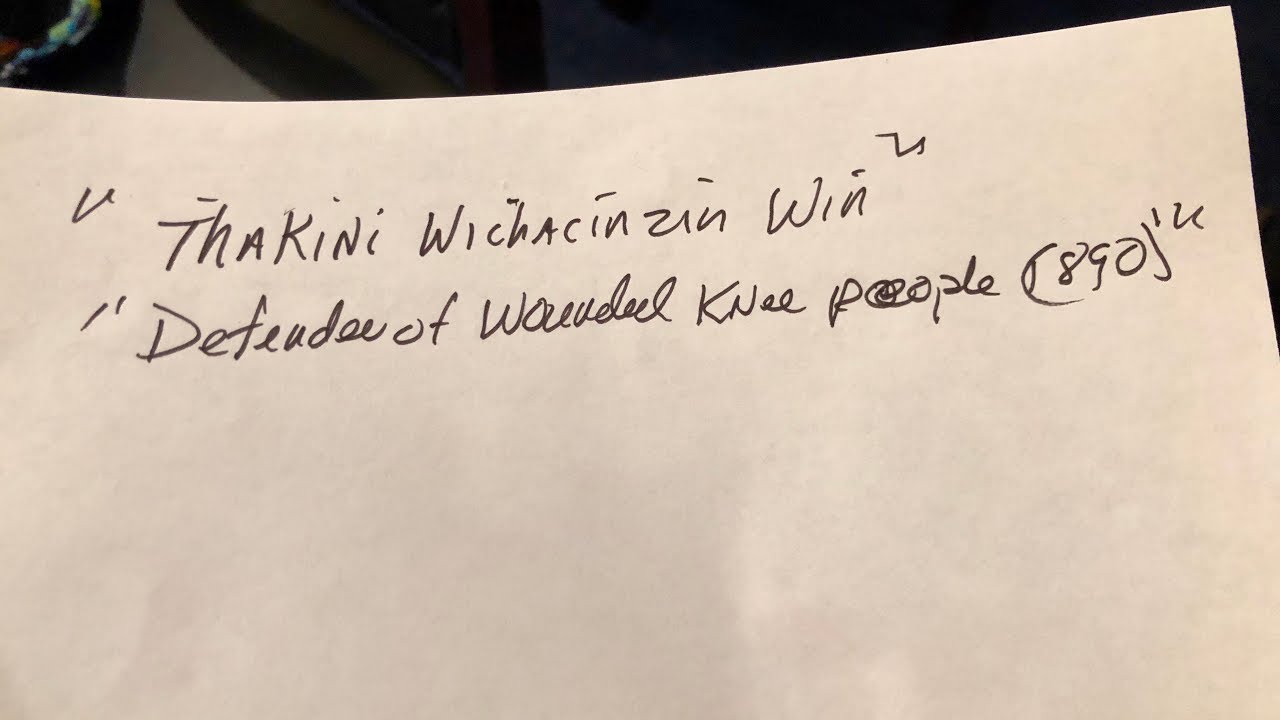 "Thakini Wichacinzin Win"
"Defender of Wounded Knee people (1890)"